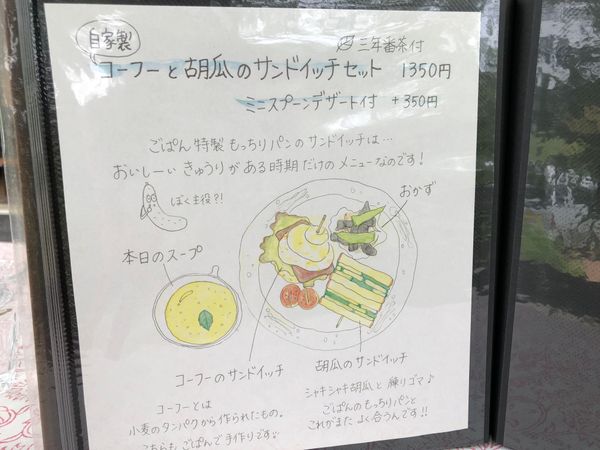 自家製
三年番茶付
コーフーと胡瓜のサンドイッチセット 1350円
ミニスプーンデザート付 +350円
ごぱん特製もっちりパンのサンドイッチは…
おいしーいきゅうりがある時期だけのメニューなのです!
ぼく主役?!
おかず
本日のスープ
コーフーのサンドイッチ
胡瓜のサンドイッチ
コーフーとは
小麦のタンパクから作られたもの。
こちらもごぱんで手作りです
シャキシャキ胡瓜と練りゴマ♪
ごぱんのもっちりパンと
これがまたよく合うんです!!